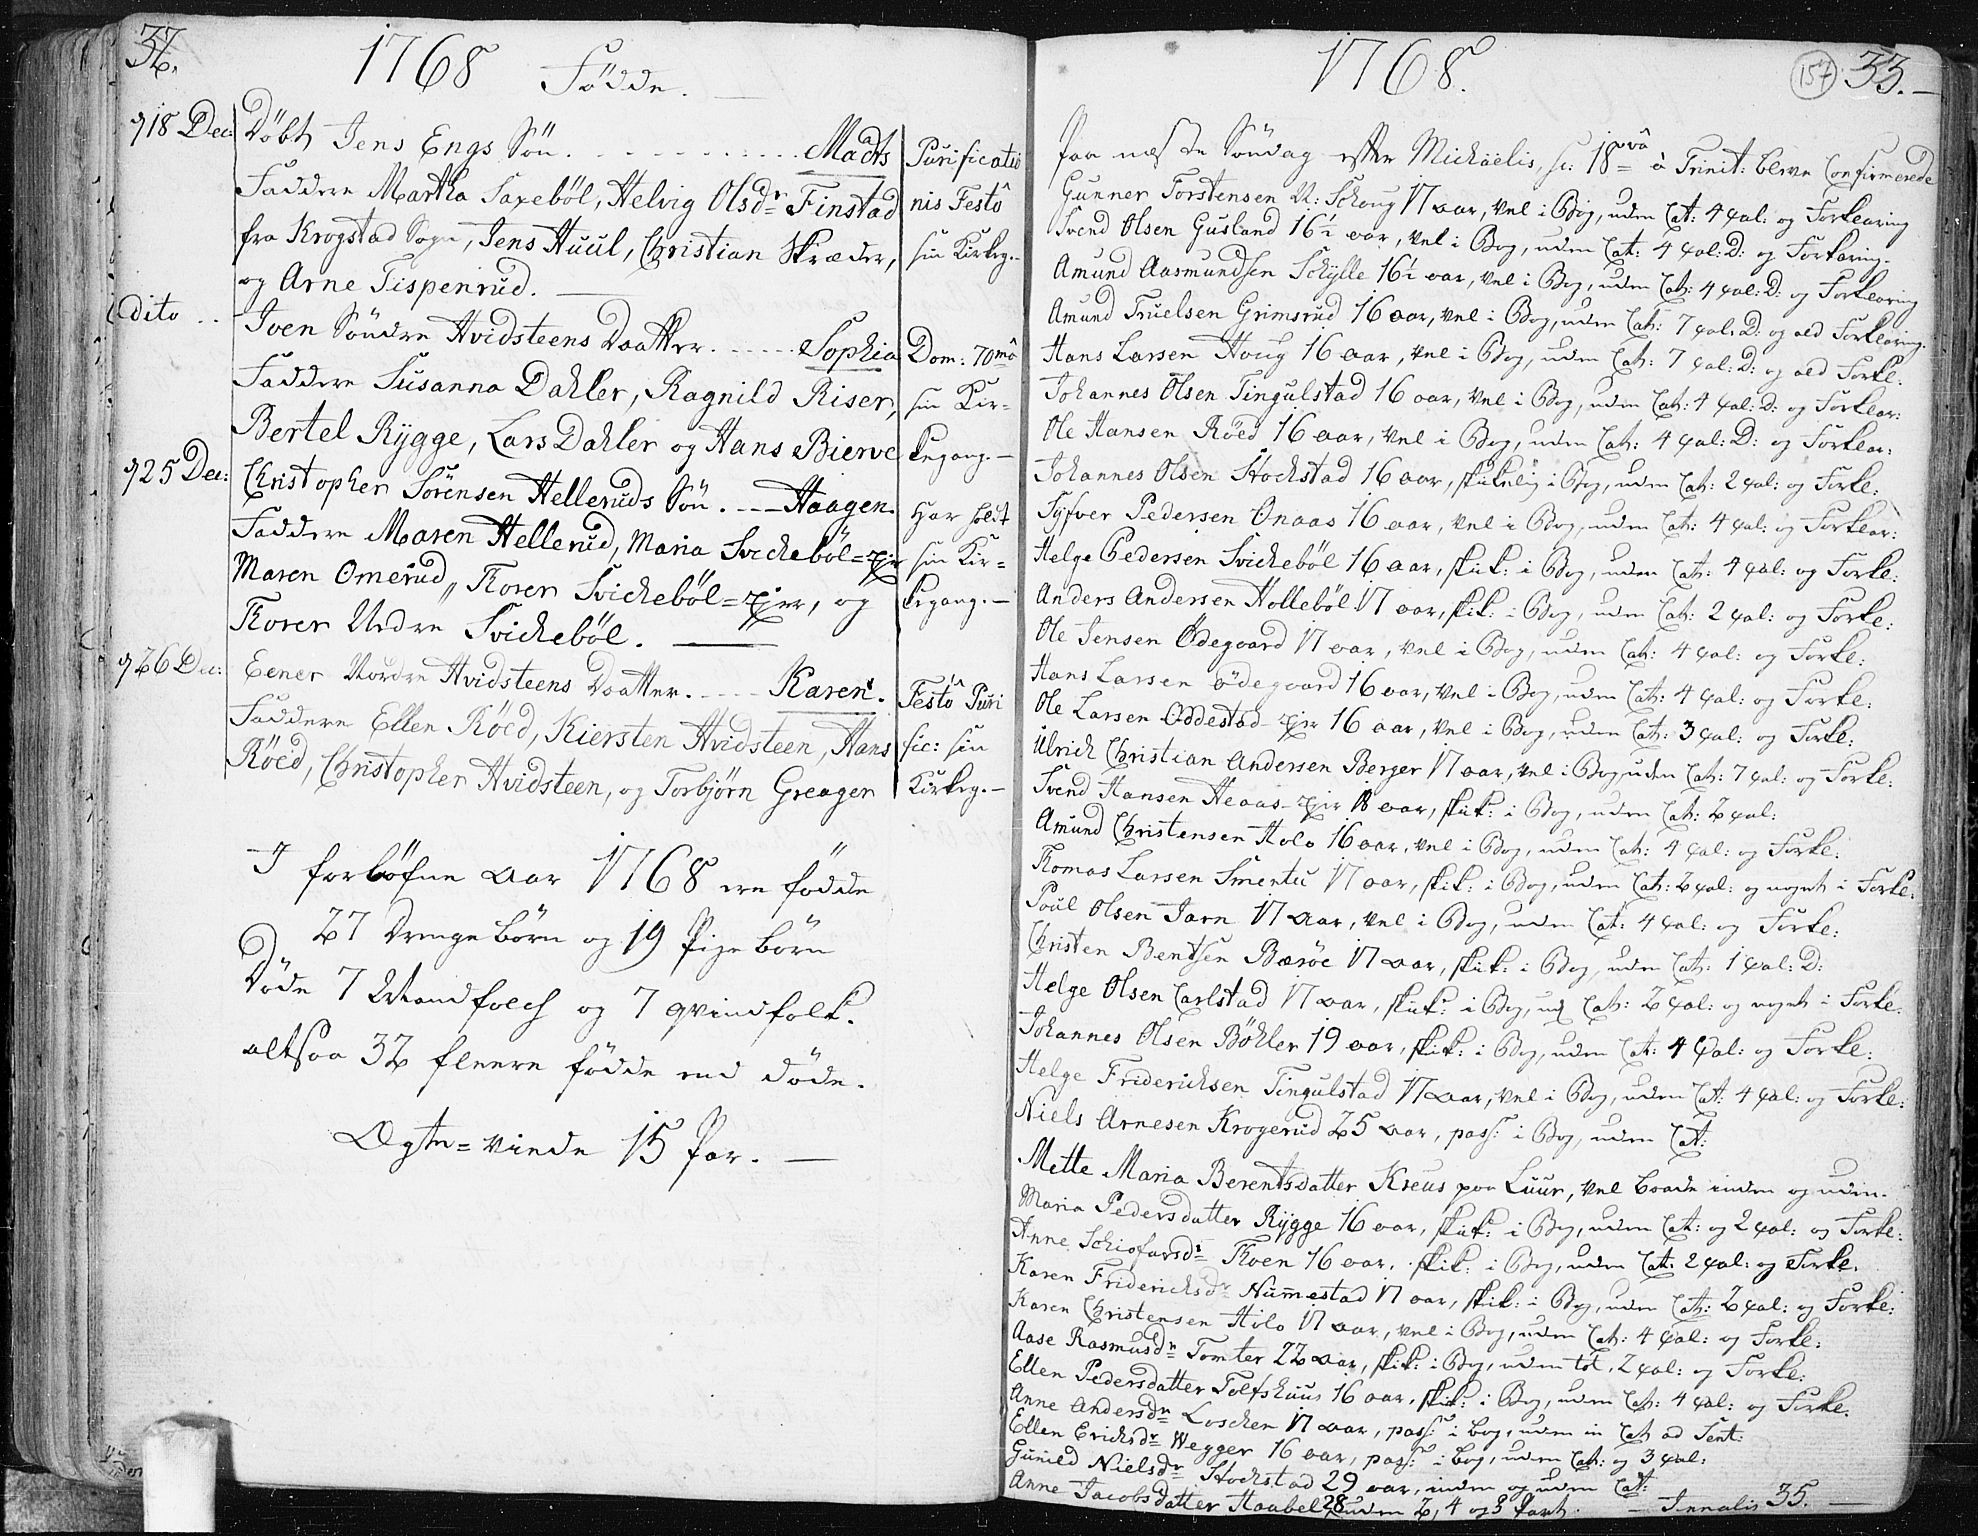 32.
1768 Födde.
718 Dec: Döbt Jens Engs Sön. - - - - - Madts
Faddere Martha Saxeböl, Helvig Olsdr Finstad
fra Krogstad Sogn, Jens Huul, Christian Skræder,
og Arne Tispenrud.
Purificatio
nis Festô
sin Kirkeg.
dito .. Iven Söndre Hvidsteens Daatter. - - - Sophia
Faddere Susanna Dahler, Ragnild Riser,
Bertel Rÿgge, Lars Dahler og Hans Bierve
Dom: 70mâ
sin Kir=
kegang.
725 Dec: Christopher Sörensen Helleruds Sön. - - - Haagen.
Faddere Maren Hellerud, Maria Svicheböl=
Maren Omerud, Thorer Svicheböl=, og
Thorer Nedre Svicheböl.
Har holdt
sin Kir=
kegang.
726 Dec: Eener Nordre Hvidsteens Daatter. - - - Karen.
Faddere Ellen Röed, Kiersten Hvidsteen, Hans
Röed, Christopher Hvidsteen, og Torbjörn Greager
Festô Puri
fic: sin
Kirkeg.
I forlöbne Aar 1768 ere födde
27 Drenge börn og 19 Pige börn
Döde 7 Mandfolch og 7 qvindfolk.
altsaa 32 fleere födde end döde.
Ægte=viede 15 Par.
1768.
157 33.
Paa næste Söndag efter Michaëlis, sc: 18va â Trinit: bleve Confirmerede
Gunner Torstensen N: Schoug 17 aar, vel i Bog, uden Cat: 4 qal: og Forklaring
Svend Olsen Gusland 16½ aar, vel i Bog, uden Cat: 4 qal: D: og Forklaring.
Amund Aasmundsen Schÿlle 16½ aar, vel i Bog, uden Cat: 4 qal: D: og Forklaring
Amund Truelsen Grimsrud 16 aar, vel i Bog, uden Cat: 7 qal: D: og ald Forklaring.
Hans Larsen Houg 16 aar, vel i Bog, uden Cat: 7 qal: D: og ald Forkl:
Johannes Olsen Tingulstad 16 aar, vel i Bog, uden Cat: 4 qal: D: og Forklar:
Ole Hansen Röed 16 aar, vel i Bog, uden Cat: 4 qal: D: og Forklar:
Johannes Olsen Stochstad 16 aar, skikelig i Bog, uden Cat: 2 qal: og Forkl:
Syfver Pedersen Onaas 16 aar, vel i Bog, uden Cat: 4 qal: og Forklar:
Helge Pedersen Svicheböl 16 aar, skik: i Bog, uden Cat: 4 qal: og Forkl:
Anders Andersen Holleböl 17 aar, skik: i Bog, uden Cat: 2 qal: og Forkl:
Ole Jensen Ödegaard 17 aar, vel i Bog, uden Cat: 4 qal: og Forkl:
Hans Larsen Ödegaard 16 aar, vel i Bog, uden Cat: 4 qal: og Forkl:
Ole Larsen Oddestad 16 aar, vel i Bog, uden Cat: 3 qal: og Forkl:
Ulrich Christian Andersen Berger 17 aar, vel i Bog, uden Cat: 7 qal: og Forkl:
Svend Hansen Heaas 18 aar, skik: i Bog, uden Cat: 2 qal:
Amund Christensen Holo 16 aar, vel i Bog, uden Cat: 4 qal: og Forkl:
Thomas Larsen Smertu 17 aar, skik: i Bog, uden Cat: 2 qal: og noget i Forkl:
Poul Olsen Jarn 17 aar, vel i Bog, uden Cat: 4 qal: og Forkl:
Christen Bentsen Baröe 17 aar, skik: i Bog, uden Cat: 1 qal: D:
Helge Olsen Carlstad 17 aar, skik: i Bog, ud Cat: 2 qal: og noget i Forkl.
Johannes Olsen Böhler 19 aar, skik: i Bog, uden Cat: 4 qal: og Forkl:
Helge Fridericksen Tingulstad 17 aar, vel i Bog, uden Cat: 4 qal: og Forkl:
Niels Arnesen Krogerud 25 aar, pass: i Bog, uden Cat:
Mette Maria Berentsdatter Kreus paa Luur, vel baade inden og uden.
Maria Pedersdatter Rÿgge 16 aar, skik: i Bog, uden Cat: og 2 qal: og Forkl:
Anne Schiofarsdr Thoen 16 aar, skik: i Bog, uden Cat: 2 qal: og Forkl:
Karen Fridericksdr Nummestad 17 aar, skik: i Bog, uden Cat: 2 qal: og Forkl:
Karen Christensen Holo 17 aar, vel i Bog, uden Cat: 4 qal: og Forkl:
Aase Rasmusdr Tomter 22 aar, skik: i Bog, uden tot, 2 qal: og Forkl:
Ellen Pedersdatter Tolfshuus 16 aar, skik: i Bog, uden Cat: 4 qal: og Forkl.
Anne Andersdr Loschen 17 aar, pass: i bog, uden in Cat ad Sent:
Ellen Ericksdr Wegger 16 aar, pass: i bog, uden Cat: og 3 qal:
Gunild Nielsdr Stochstad 29 aar, inden og uden Cat:
Anne Jacobsdatter Haabel 28 uden 2, 4 og 5 Part. - Innalis 35.